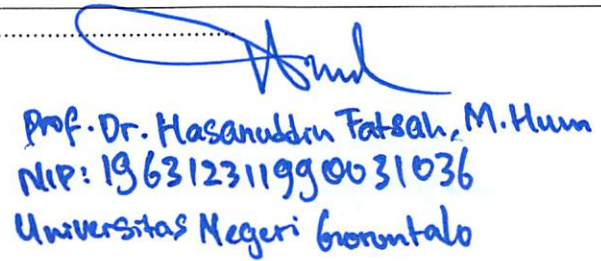 Prof. Dr. Hasanuddin Fatsah, M. Hum
NIP: 196312311990031036
Universitas Negeri Gorontalo